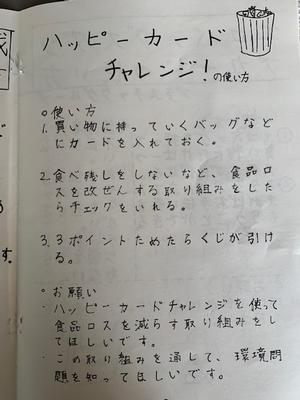 ハッピーカード
チャレンジ!の使い方
○使い方
1.買い物に持っていくバッグなど
にカードを入れておく。
2.食べ残しをしないなど、食品ロ
スを改ぜんする取り組みをした
らチェックをいれる。
3.3ポイントためたらくじが引け
る。
○お願い
・ハッピーカードチャレンジを使って
食品ロスを減らす取り組みをし
てほしいです。
・この取り組みを通して、環境問
題を知ってほしいです。